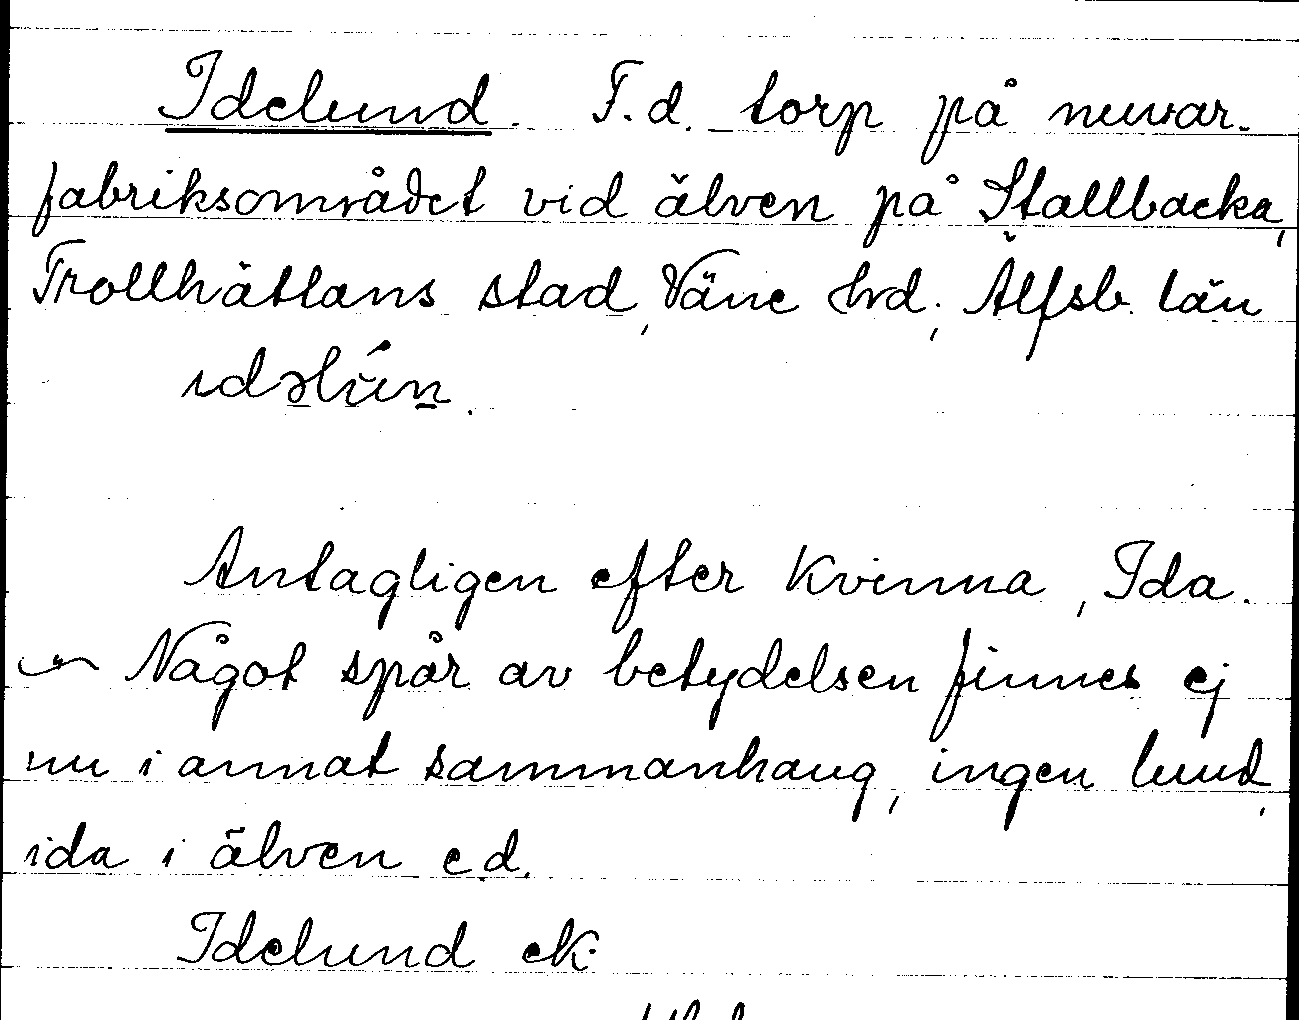 Idelund. F.d. torp på nuvar.
fabriksområdet vid älven på Stallbacka,
Trollhättans stad, Väne hrd, Älfsb. län
idəlún.
Antagligen efter Kvinna, Ida.
Något spår av betydelsen finnes ej
nu i annat sammanhang, ingen lund,
ida i älven e.d.
Idelund ek.